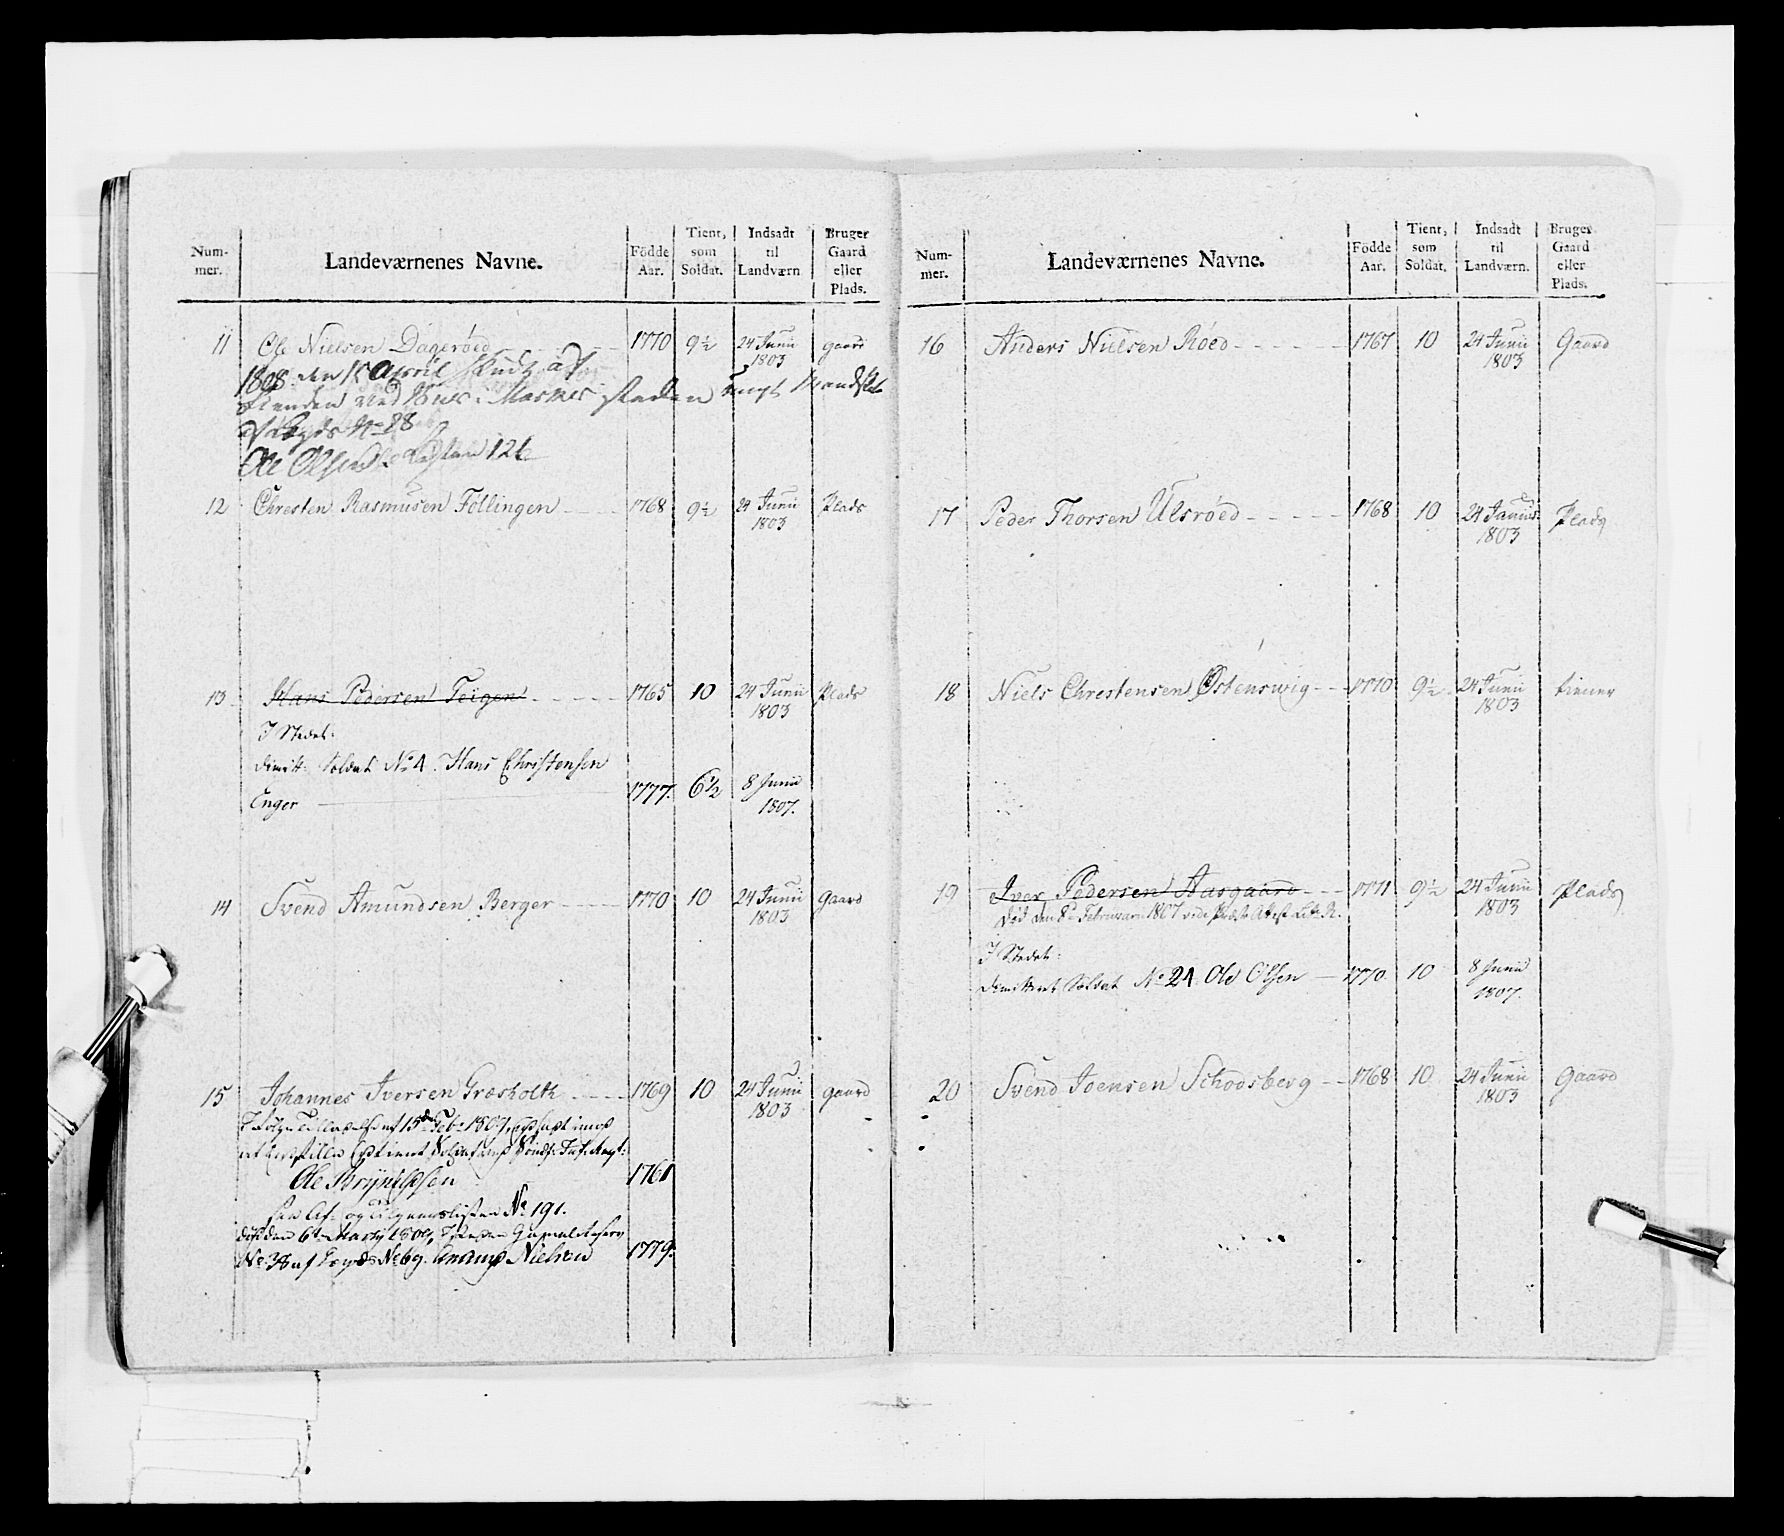 Num-
mer.
Landeværnenes Navne.
Födde
Aar.
Tient,
som
Soldat.
Indsadt
til
Landværn
Bruger
Gaard
eller
Plads.
11 Ole Nielsen Dagerøed 1770 9½ 24 Junii 1803 gaard
1808 den April Skudt af
Fienden ved
af Lægds No 88
Ole Olsen 126
12 Chresten Rasmusen Föllingen 1768 9½ 24 Junii 1803 Plads
13 Hans Pedersen Teigen 1765 10 24 Junii 1803 Plads
I Stedet:
dimitt: Soldat No 4. Hans Christensen
Enger 1777. 6½ 8 Junii 1807.
14 Svend Amundsen Berger 1770 10 24 Junii 1803 Gaard
15 Johannes Iversen Græsholth 1769 10 24 Junii 1803 gaard
Ole 1761
No 191.
død den 6te Martz
No 69. Nielsen 1779.
Num-
mer.
Landeværnenes Navne.
Födde
Aar.
Tient,
som
Soldat.
Indsadt
til
Landværn.
Bruger
Gaard
eller
Plads.
16 Anders Nielsen Röed 1767 10 24 Junii 1803 Gaard
17 Peder Thorsen Ulsrøed 1768 10 24 Junii 1803 Plads
18 Niels Chrestensen Østenswig 1770 9½ 24 Junii 1803 tiener
19 Iver Pedersen Aasgaard 1771 9½ 24 Junii 1803 Plads
Död den 8de Februarii 1807 vide Præste Attest Litr R.
I Stedet:
dimitteret Soldat No 24 Ole Olsen 1770 10 8 Junii 1807.
20 Svend Joensen Schodsberg 1768 10 24 Junii 1803 Gaard